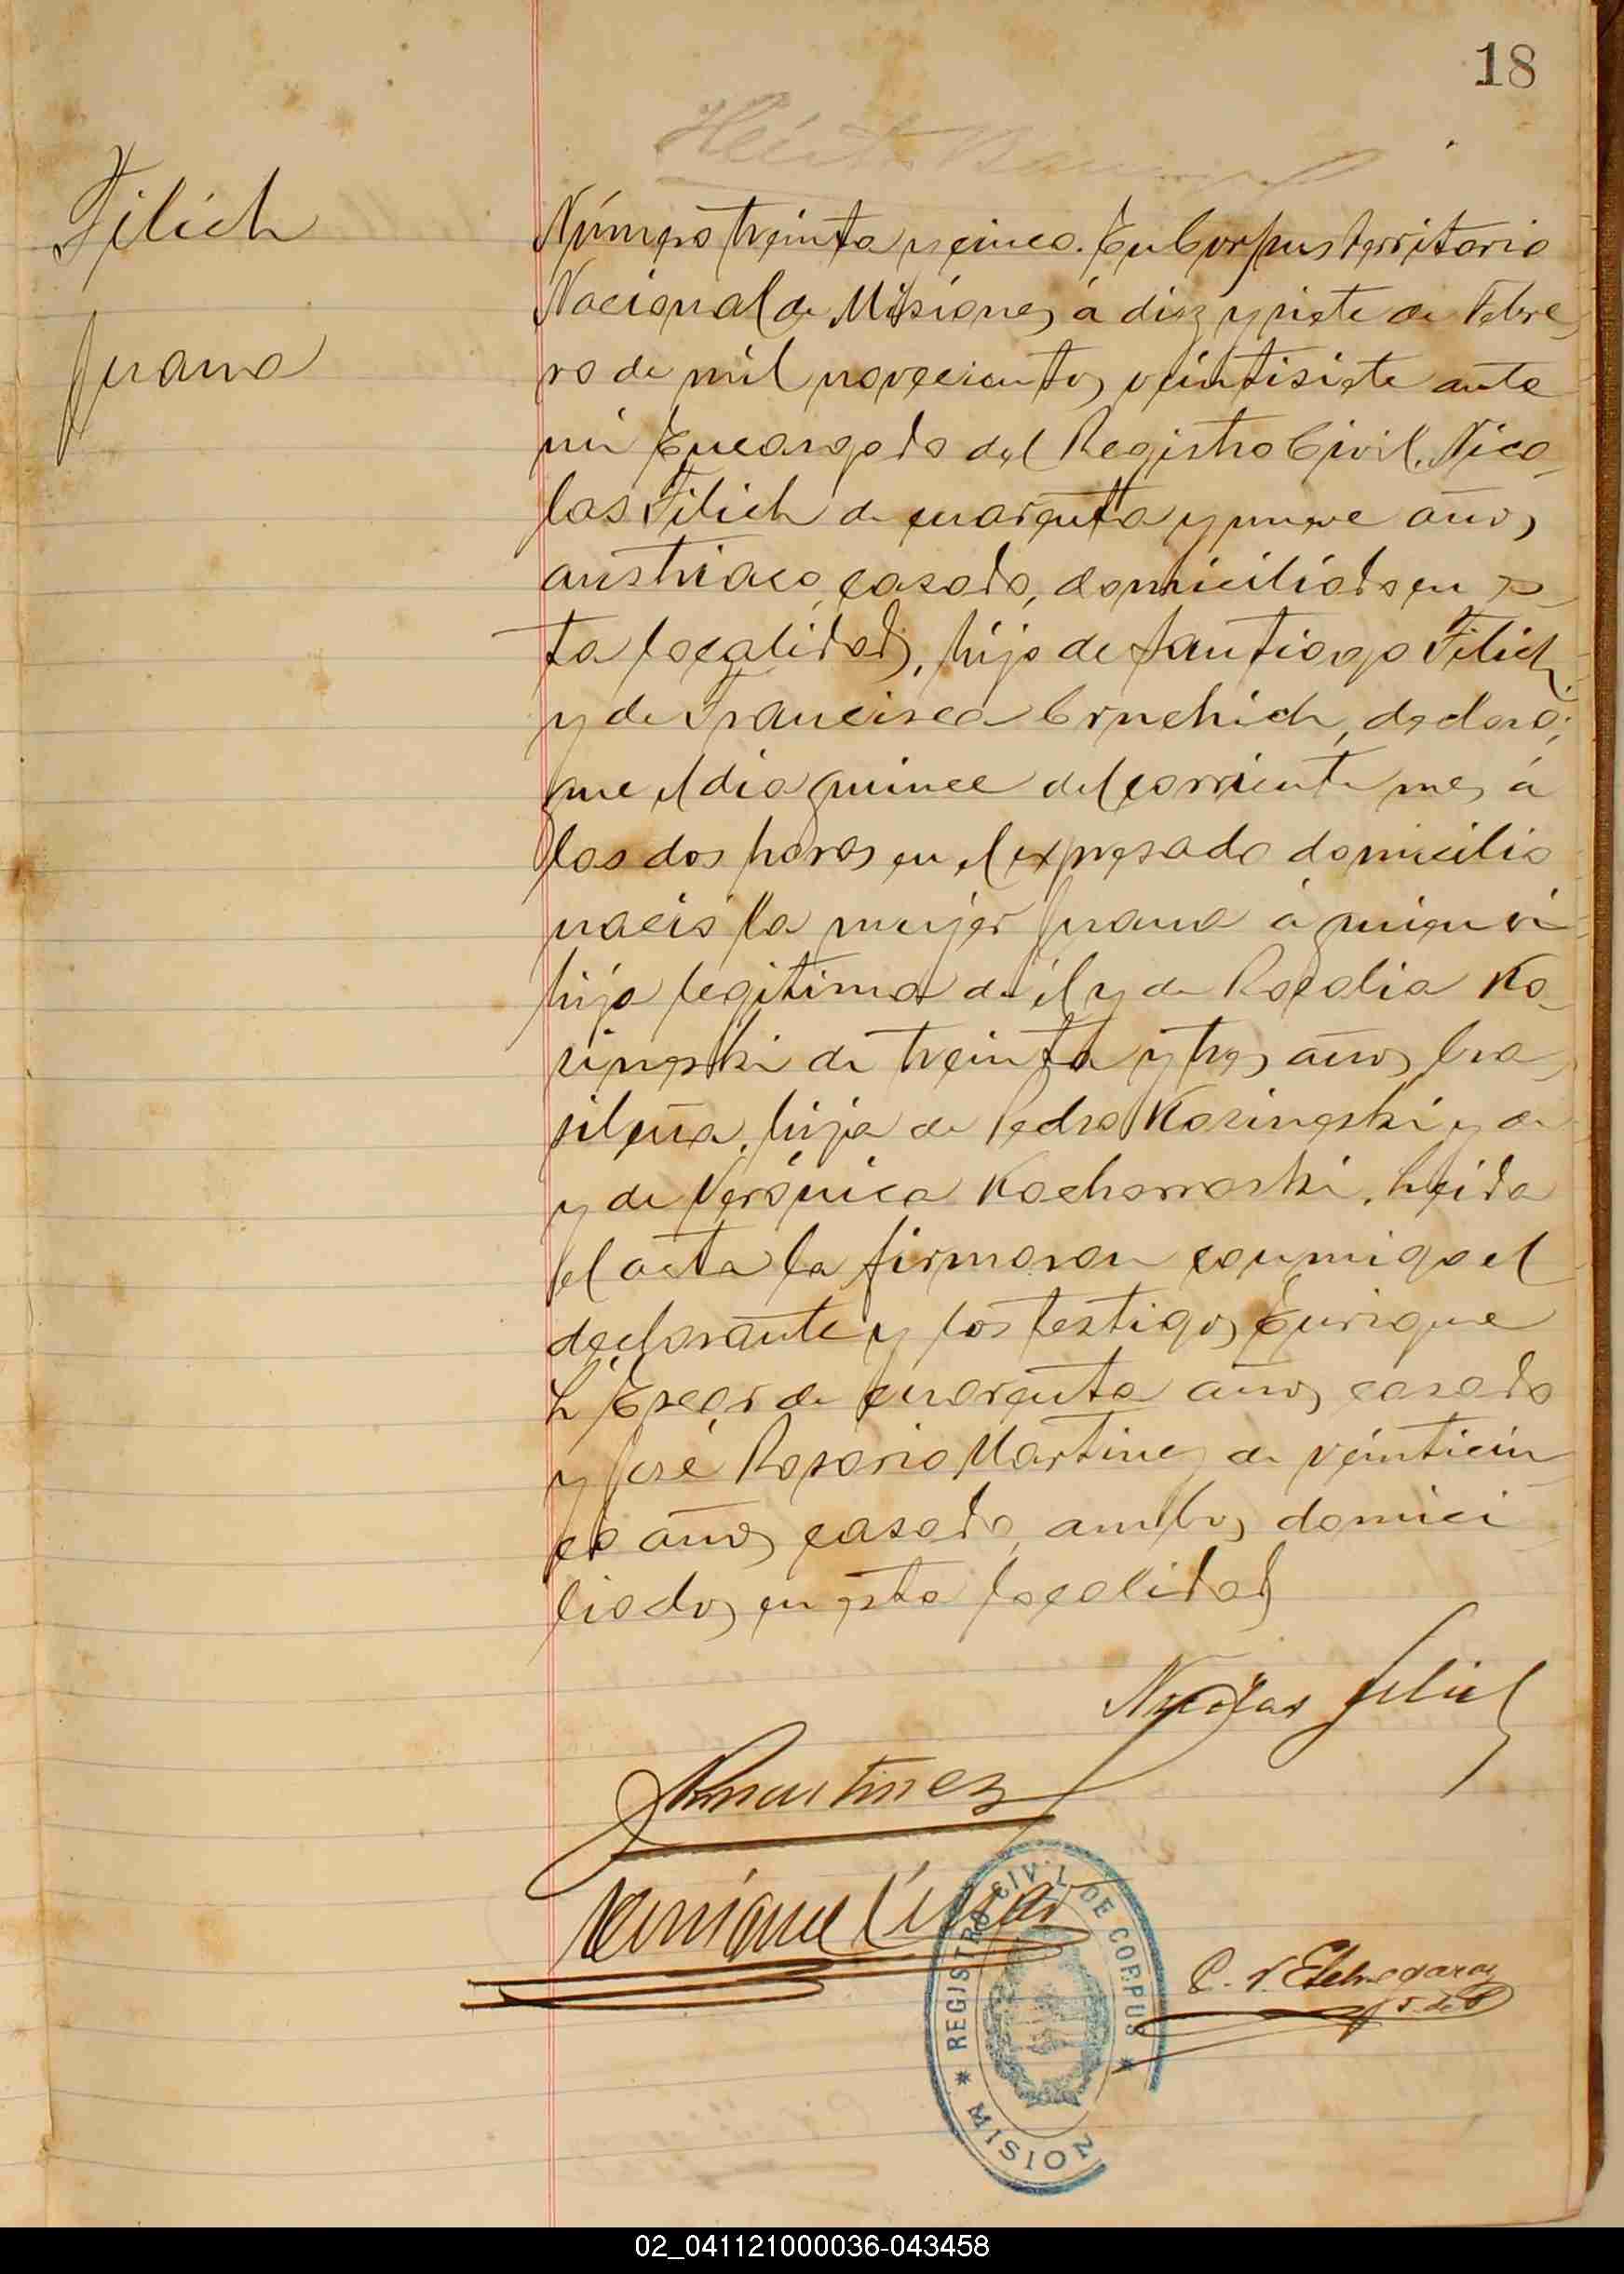 18
Filich
Juana
Número treinta y cinco. En Corpus territorio
Nacional de Misiones, á diez y siete de Febre
ro de mil novecientos veintisiete ante
mi Encargado del Registro Civil, Nico
las Filich de cuarenta y nueve años,
austriaco, casado, domiciliado en es
ta localidad, hijo de Santiago Filich
y de Francisca Crnchich, declaró:
que el dia quince del corriente mes á
las dos horas en el expresado domicilio
nació la mujer Juana á quien vi
hija legitima de él y de Rosalia Ko
singski de treinta y tres años, bra
sileña, hija de Pedro Kosingski y de
y de Verónica Kochanoski. Leida
el acta la firmaron conmigo el
declarante y los testigos Enrique
L'Escar de cuarenta años, casado
y José Rosario Martinez de veinticin
co años, casado, ambos domici
liados en esta localidad
Nicolas Filich
JRMartinez
Henrique L'Escar
REGISTRO CIVIL DE CORPUS
MISION
P. V. Etchegaray
J. de P
02_041121000036-043458